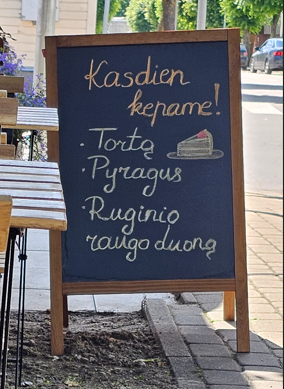 Kasdien
kepame!
· Tortą
· Pyragus
· Ruginio
raugo duoną